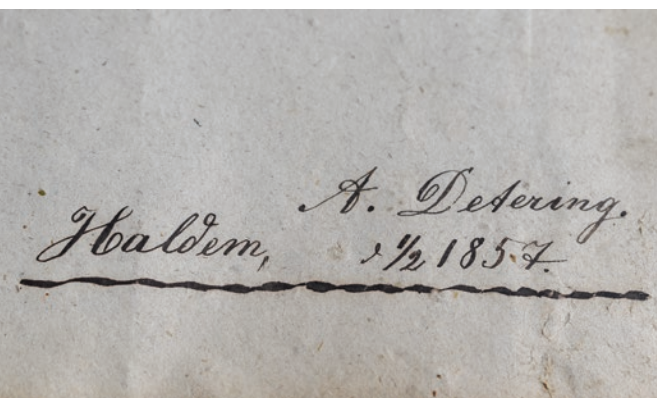 A. Detering.
Haldem, d 1/2 1857.